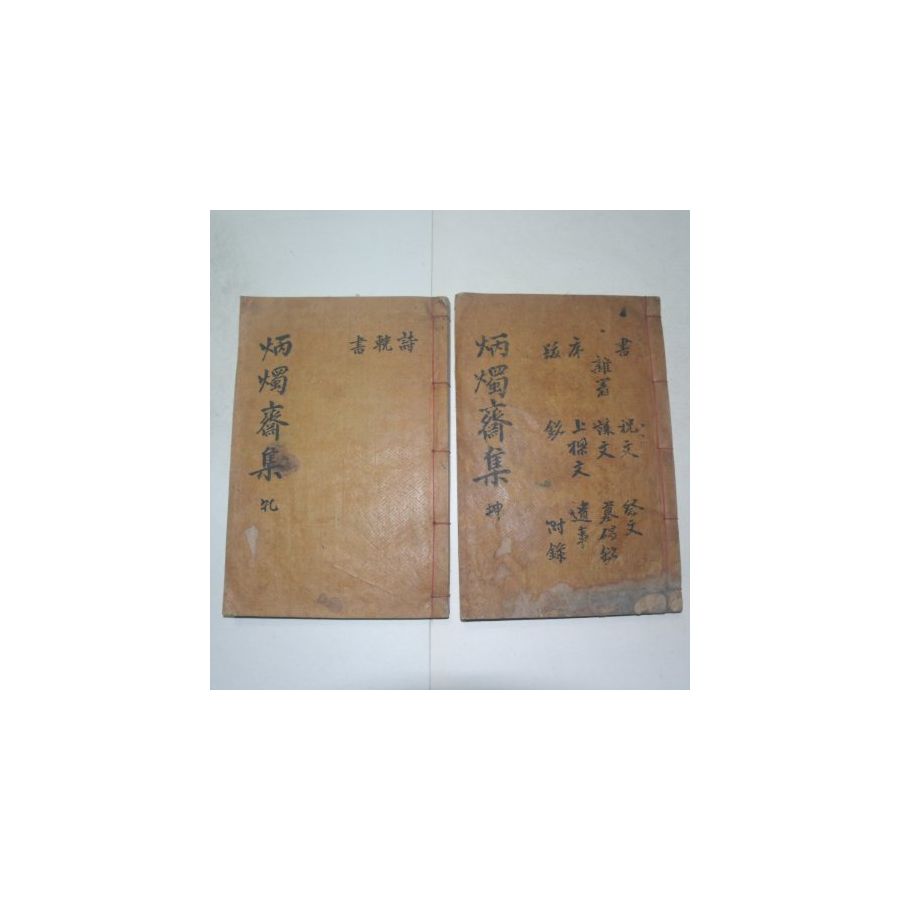 炳燭齋集
詩輓書
炳燭齋集 坤
書 祝文 祭文
雜著 誄文 墓碣銘
序 上樑文 遺事
跋 銘 附錄